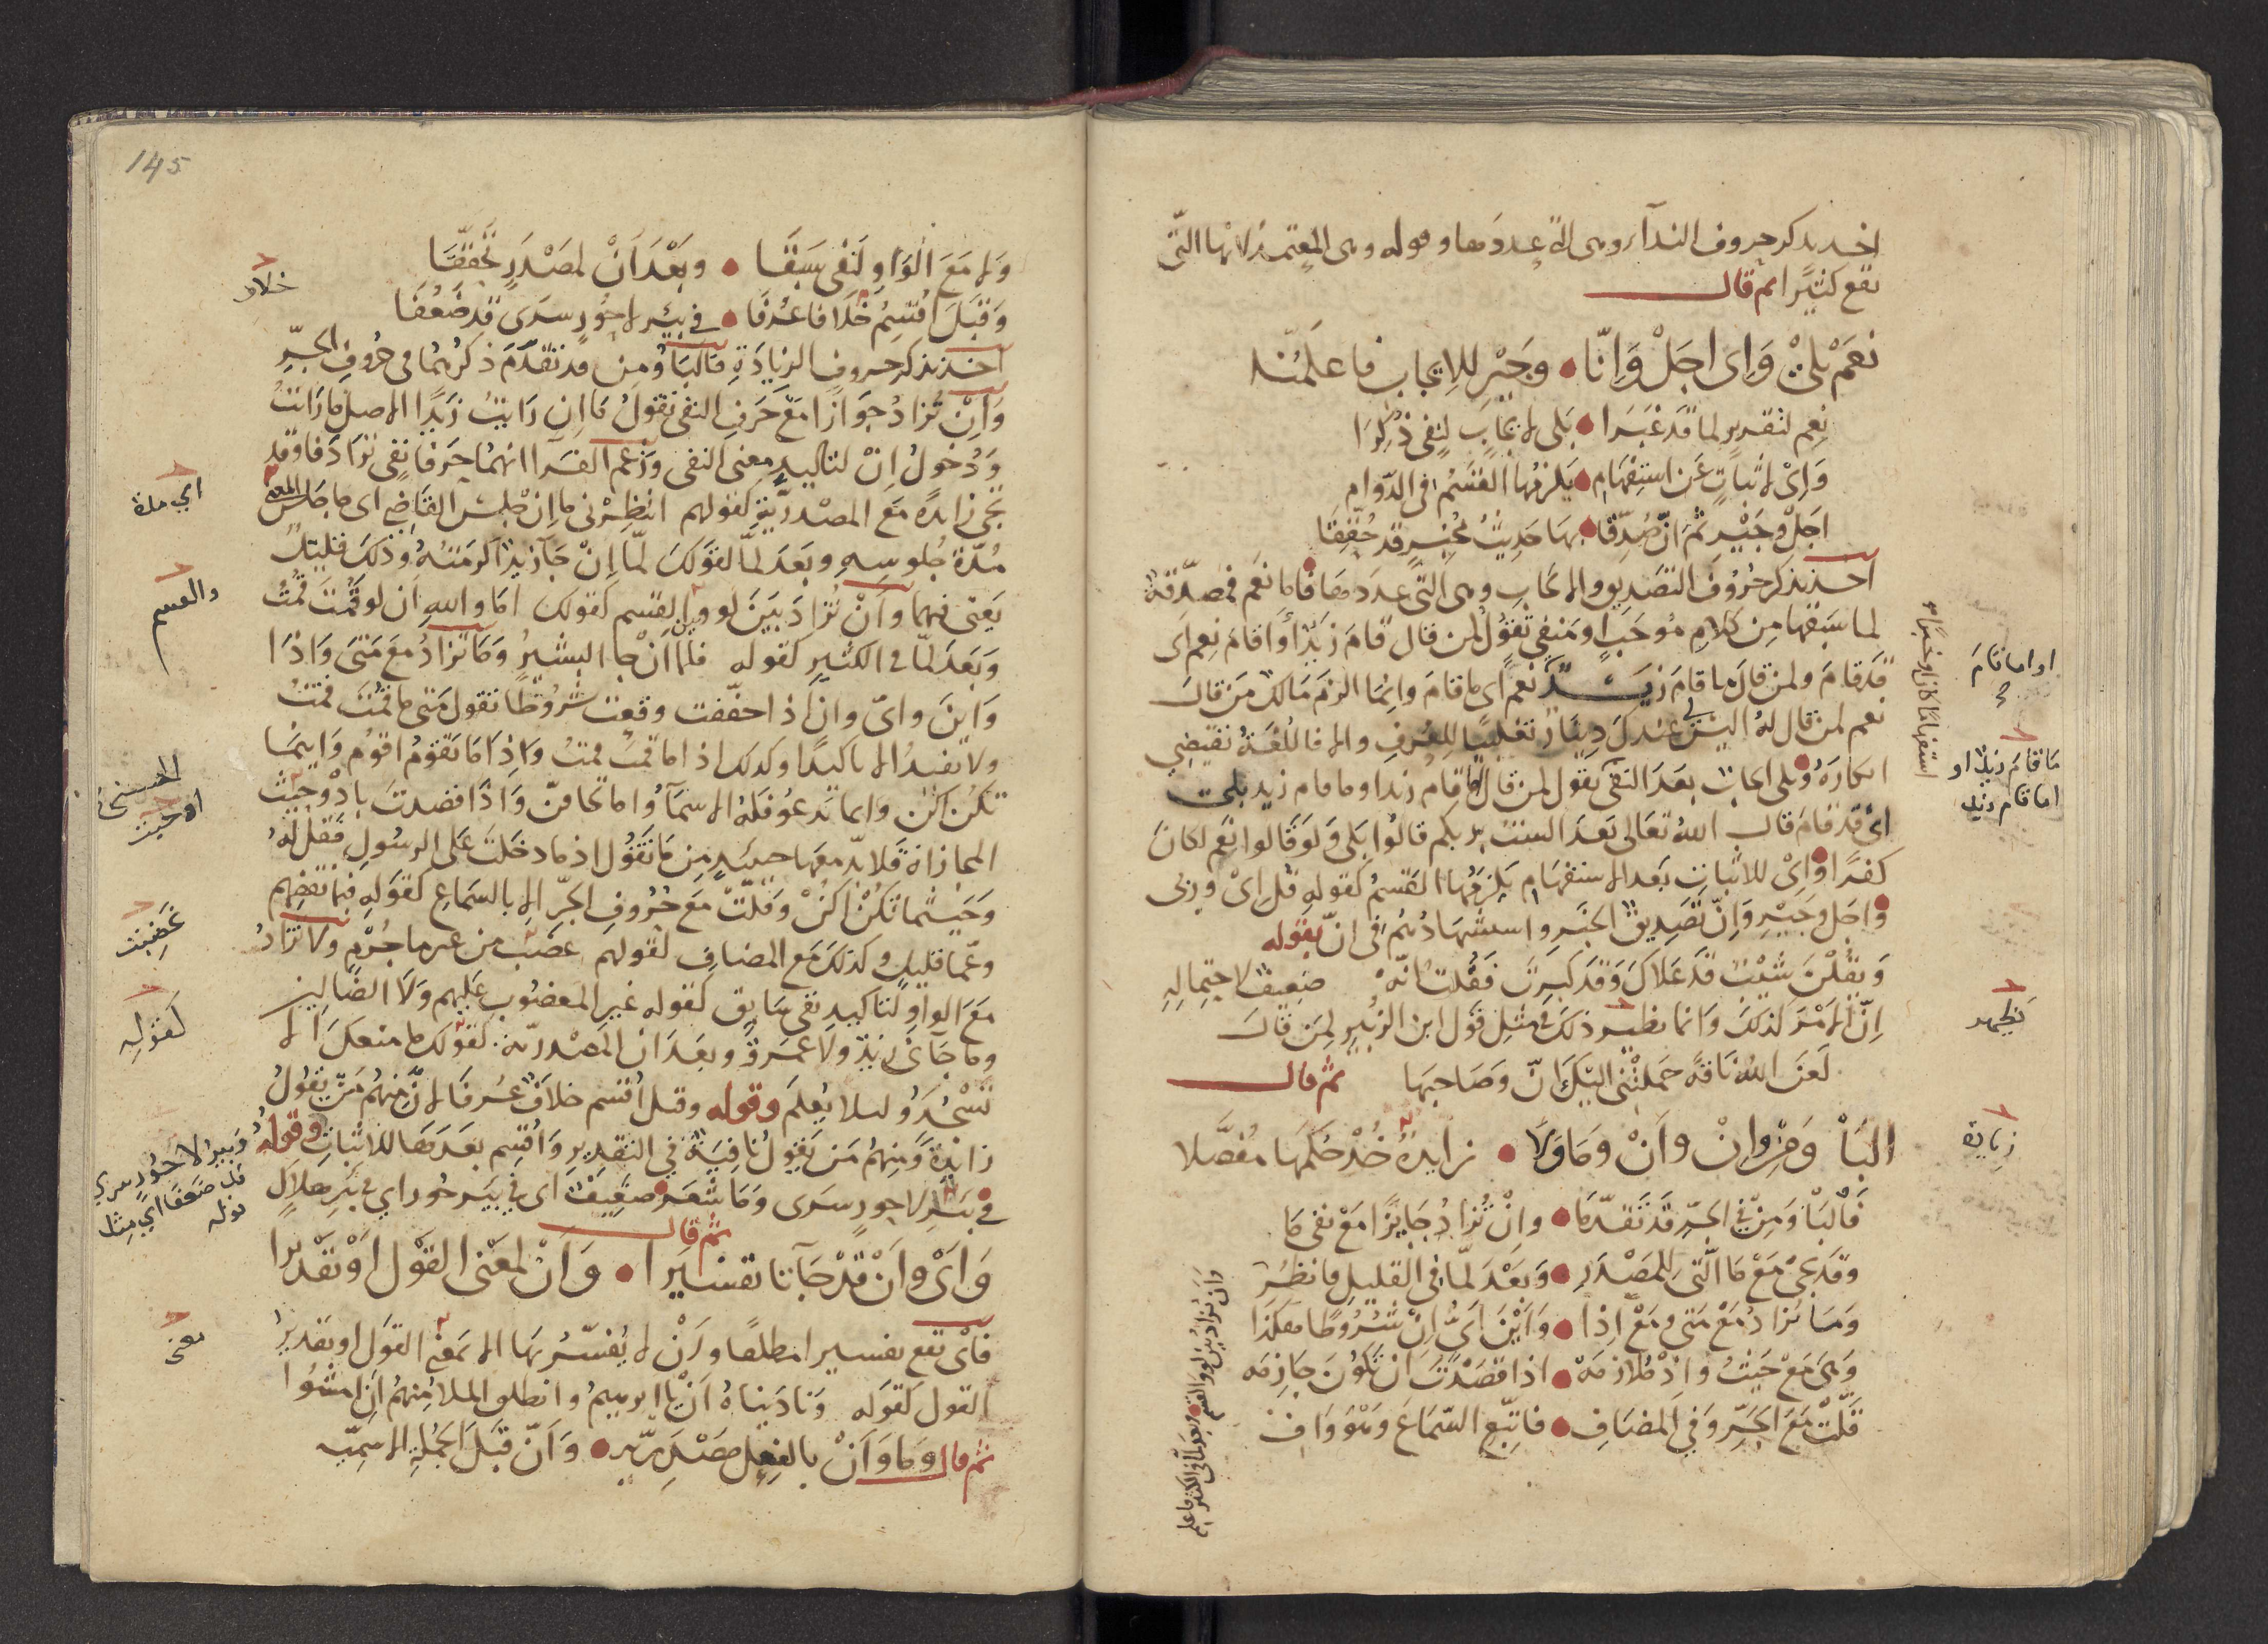 اخذ يذكر حروف النداء وهي التي عددها وقوله وهي المعتمد لانها التي
تقع كثيرًا ثم قال
نعم بلى وَاِي اجل وَاِنّا • وجير للايجاب فاعلمنه
نعم لتقرير لما قد غبرا • بلى لايجاب لنفي ذكرا
وَاِي لاثبات عن استفهام • يلزمها القسم في الدوام
اجل وجير ثم ان صدقا • بها حديث مخبر قد حققا
اخذ يذكر حروف التصديق والايجاب وهي التي عددها فاما نعم فمصدقة
لما سبقها من كلام موجب او منفي تقول لمن قال قام زيد أو اقام نعم اي
قد قام ولمن قال ما قام زيد نعم اي ما قام وانما الزم مالك من قال
نعم لمن قال له اليس لي عندك دينار تغليبًا للعرف والا فاللغة تقتضي
انكاره وبلى ايجاب بعد النفي تقول لمن قال اما قام زيد او ما قام زيد بلى
اي قد قام قال الله تعالى بعد الست بربكم قالوا بلى ولو قالوا نعم لكان
كفرًا واي للاثبات بعد الاستفهام يلزمها القسم كقوله قل اي وربي
واجل وجير وان تصديق الخبر واستشهادهم في ان بقوله
ويقلن شيب قد علاك وقد كبرت فقلت انه ضعيف لاحتماله
ان الامر كذلك وانما يظهر ذلك في مثل قول ابن الزبير لمن قال
لعن الله ناقة حملتني اليك ان وصاحبها ثم قال
البا ومن وان وأن وما ولا • زايدة خذ حكمها مفصلا
فالبا ومن في الجر قد تقدما • وان تزاد جايزًا مع نفي ما
وقد تجي مع ما التي للمصدر • وبعد لما في القليل فانظر
وما تزاد مع متى ومع اذا • واين اي ان شروطا هكذا
وهي مع حيث واذ ملازمه • اذا قصدت ان تكون جازمه
قلت مع الجر وفي المضاف • فاتبع السماع وهو واف
استفهامًا كان او خبرًا
او اما قام
ما قام زيد او
اما قام زيد
يظهر
زيادة
وان تزاد بين لو والقسم • وبعد لما في الكثير فاعلم
145
ولا مع الواو لنفي سبقا • وبعد ان لمصدر تحققا
وقبل اقسم خلاف عرفا • في بئر لا حور سرى قد ضعفا
اخذ يذكر حروف الزيادة فالبا ومن قد تقدم ذكرهما في حروف الجر
وان تزاد جوازا مع حرف النفي تقول ما ان رايت زيدًا الاصل ما رايت
ودخول ان لتاكيد معنى النفي وزعم الفرا انهما حرفا نفي ترادفا وقد
تجي زايدة مع المصدرية كقولهم انتظرني ما ان جلس القاضي اي ما جلس
مدة جلوسه وبعد لما كقولك لما ان جا زيد اكرمته وذلك قليل
يعني فيهما وأن تزاد بين لو وبين القسم كقولك اما والله ان لو قمت قمت
وبعد لما في الكثير كقوله فلما ان جا البشير وما تزاد مع متى واذا
واين واي وان اذا حققت وقعت شروطا تقول متى ما قمت قمت
ولا تفيد الا تاكيدا وكذلك اذا ما قمت قمت واذا ما تقوم اقوم واينما
تكن اكن وايا ما تدعو فله الاسما واما تخافن واذا قصدت باذ وحيث
المجازاة فلا بد معها حينيذ من ما تقول اذ ما دخلت على الرسول فقل له
وحيثما تكن اكن وقلت مع حروف الجر الا بالسماع كقوله فبما نقضهم
وعما قليل وكذلك مع المضاف كقولهم غضبت من غير ما جرم ولا تزاد
مع الواو لتاكيد نفي سابق كقوله غير المغضوب عليهم ولا الضالين
وما جاني زيد ولا عمرو وبعد ان المصدرية كقولك ما منعك ان لا
تسجد ولئلا يعلم وقوله وقبل اقسم خلاف عرفا لان منهم من يقول
زايدة ومنهم من يقول نافية في التقدير واقسم بعدها للاثبات وقوله
في بئر لا حور سرى وما شعر ضعيف اي في بير حور اي في بير هلاك
ثم قال
واي وأن قد جاتا تفسيرا • وان لمعنى القول او تقديرا
فاي تقع تفسيرا مطلقًا وان لا يفسر بها الا بمعنى القول او تقدير
القول كقوله وناديناه أن يا ابرهيم وانطلق الملا منهم ان امشوا
ثم قال وما وأن بالفعل مصدريه • وأن قبل الجملة الاسميه
خلاف
اي مدة
والقسم
او حيث
غضبت
كقوله
وبير لا حور سرى
قد ضعفا اي مثل
قوله
معنى